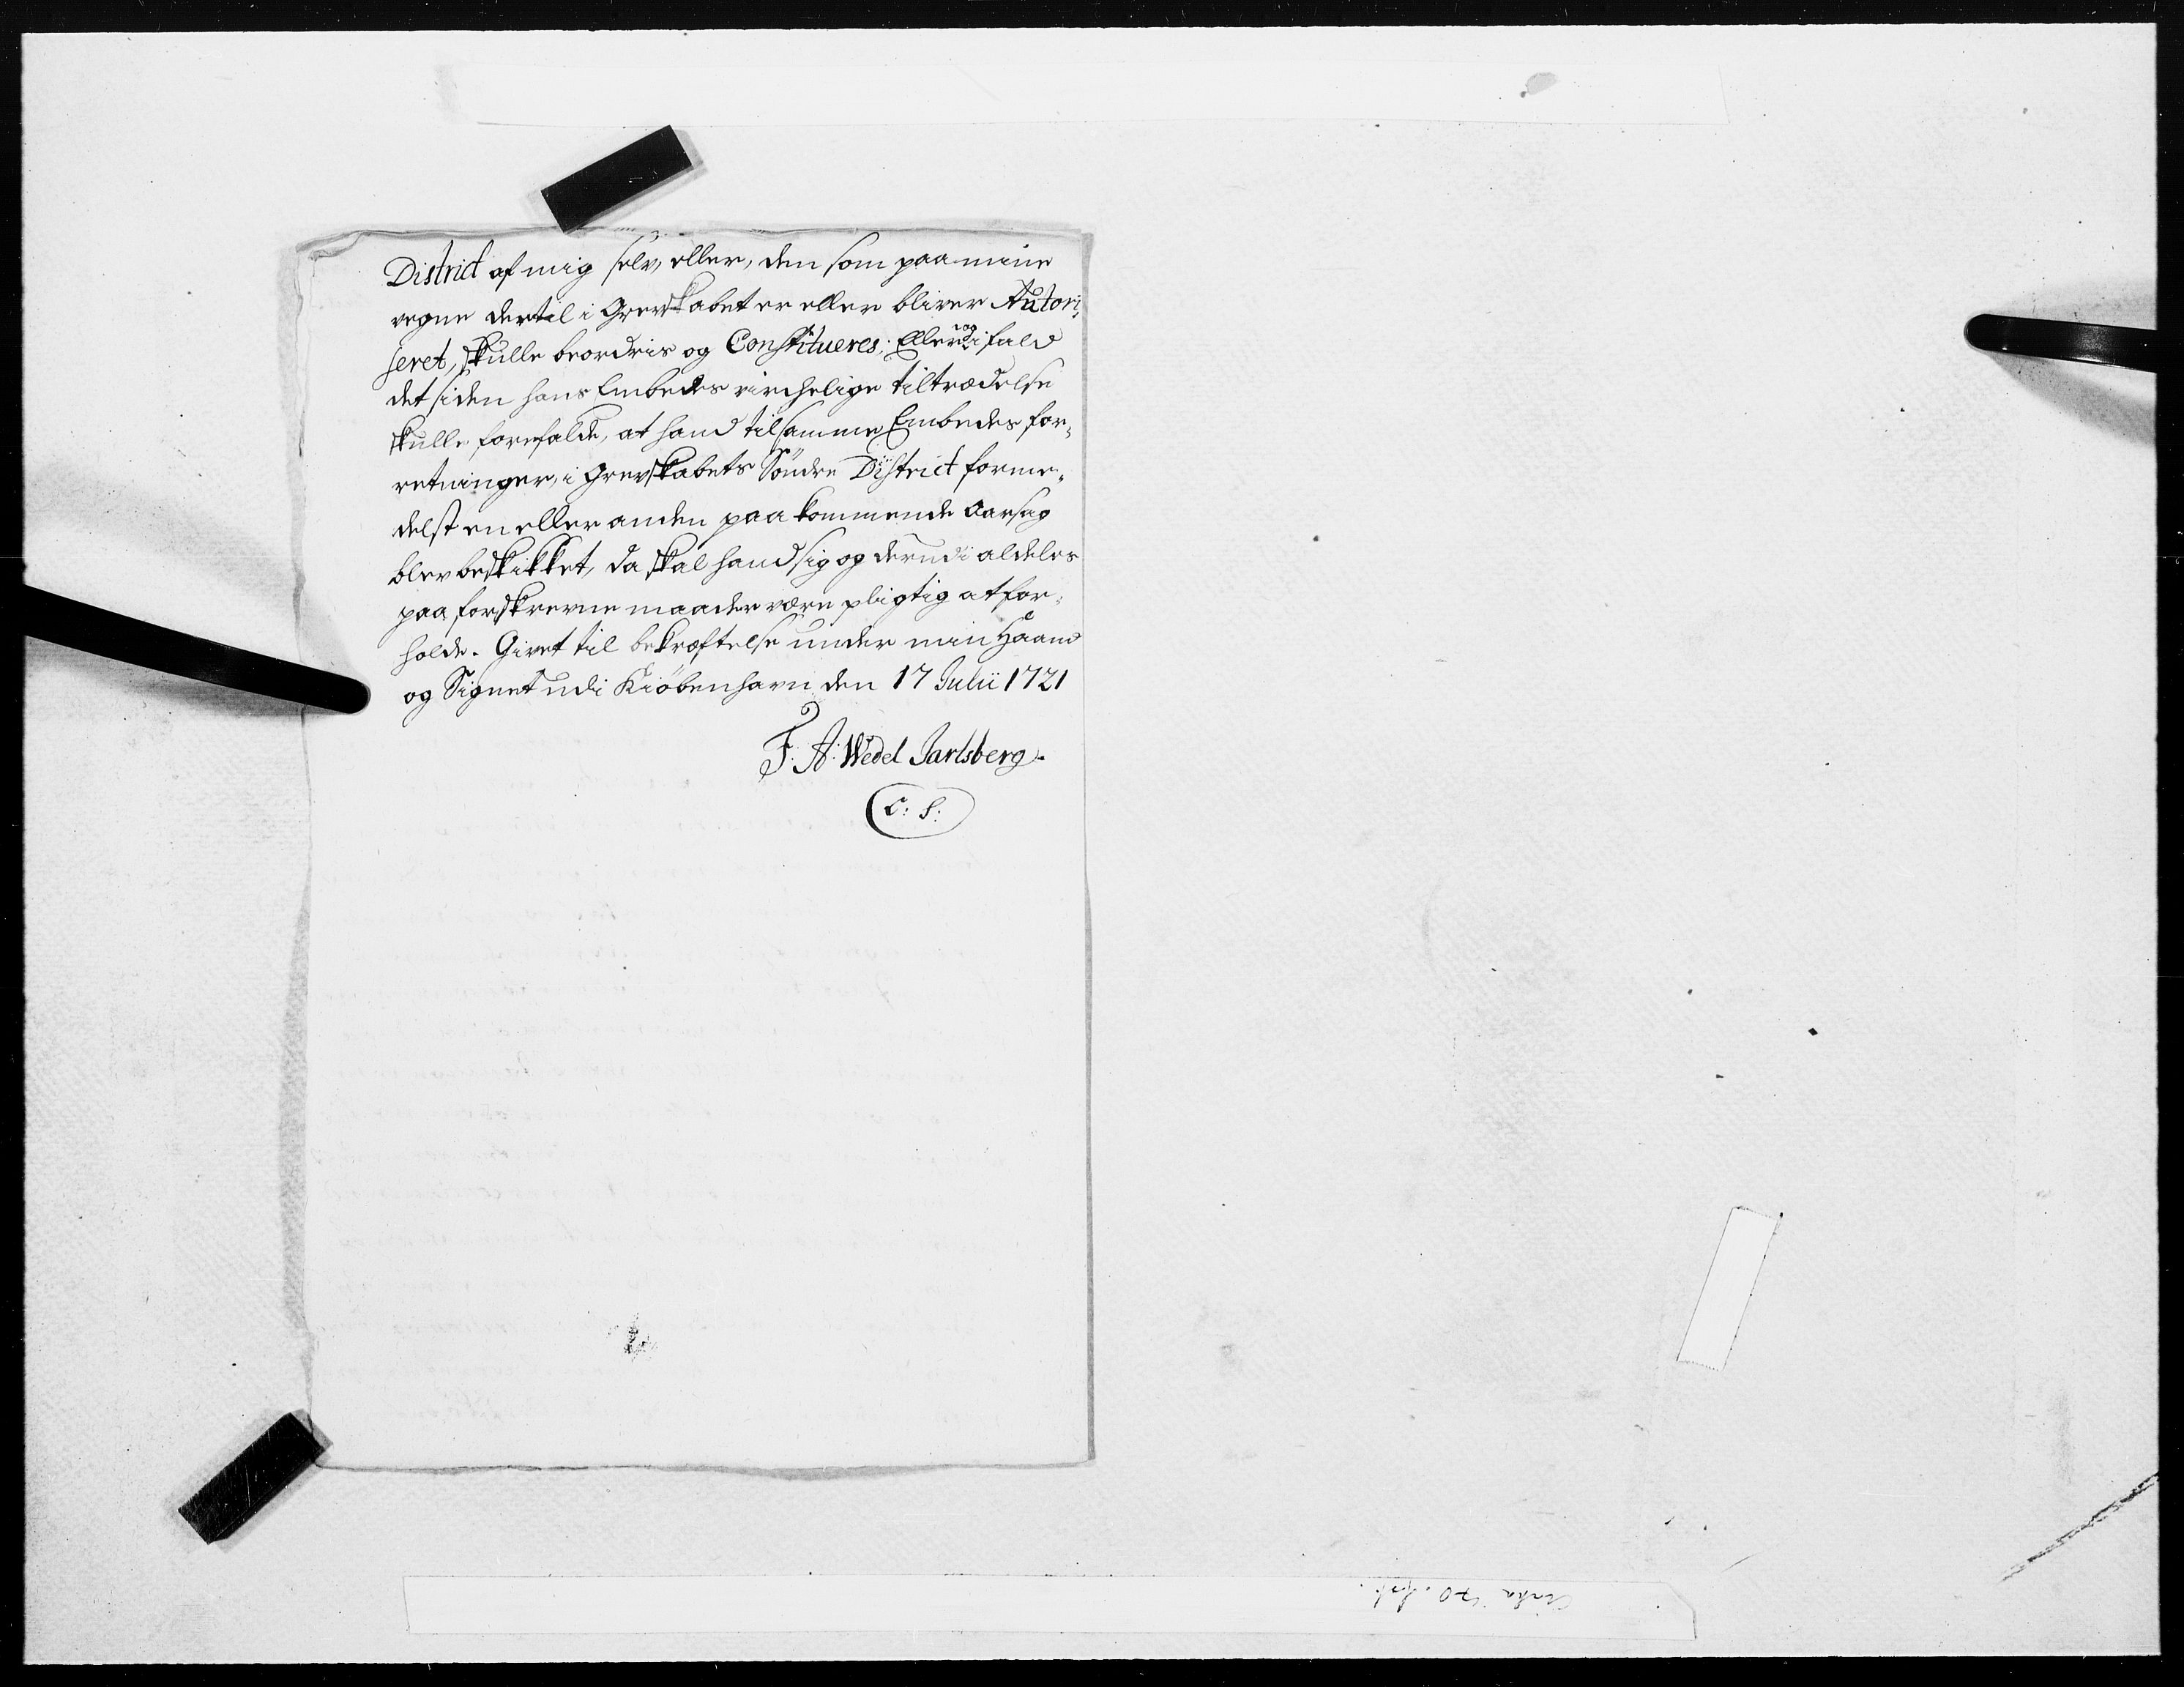 District af mig selv, eller, den som paa mine
vegne dertil i Grevskabet er eller bliver Autori,
seret, skulle beordris og Constitueres; Eller og i fald
det siden hans Embedes virchelige tiltrædelse
skulle forefalde, at hand til samme Embedes for,
retninger, i Grevskabets Söndre District forme,
delst en eller anden paakommende Aarsag
blev beskikket, da skal hand sig og derudi aldeles
paa forskrevne maader være pligtig at for,
holde. Givet til bekræftelse under min Haand
og Signet udi Kiöbenhavn den 17 Julii 1721
F: A: Wedel Jarlsberg.
L: S: